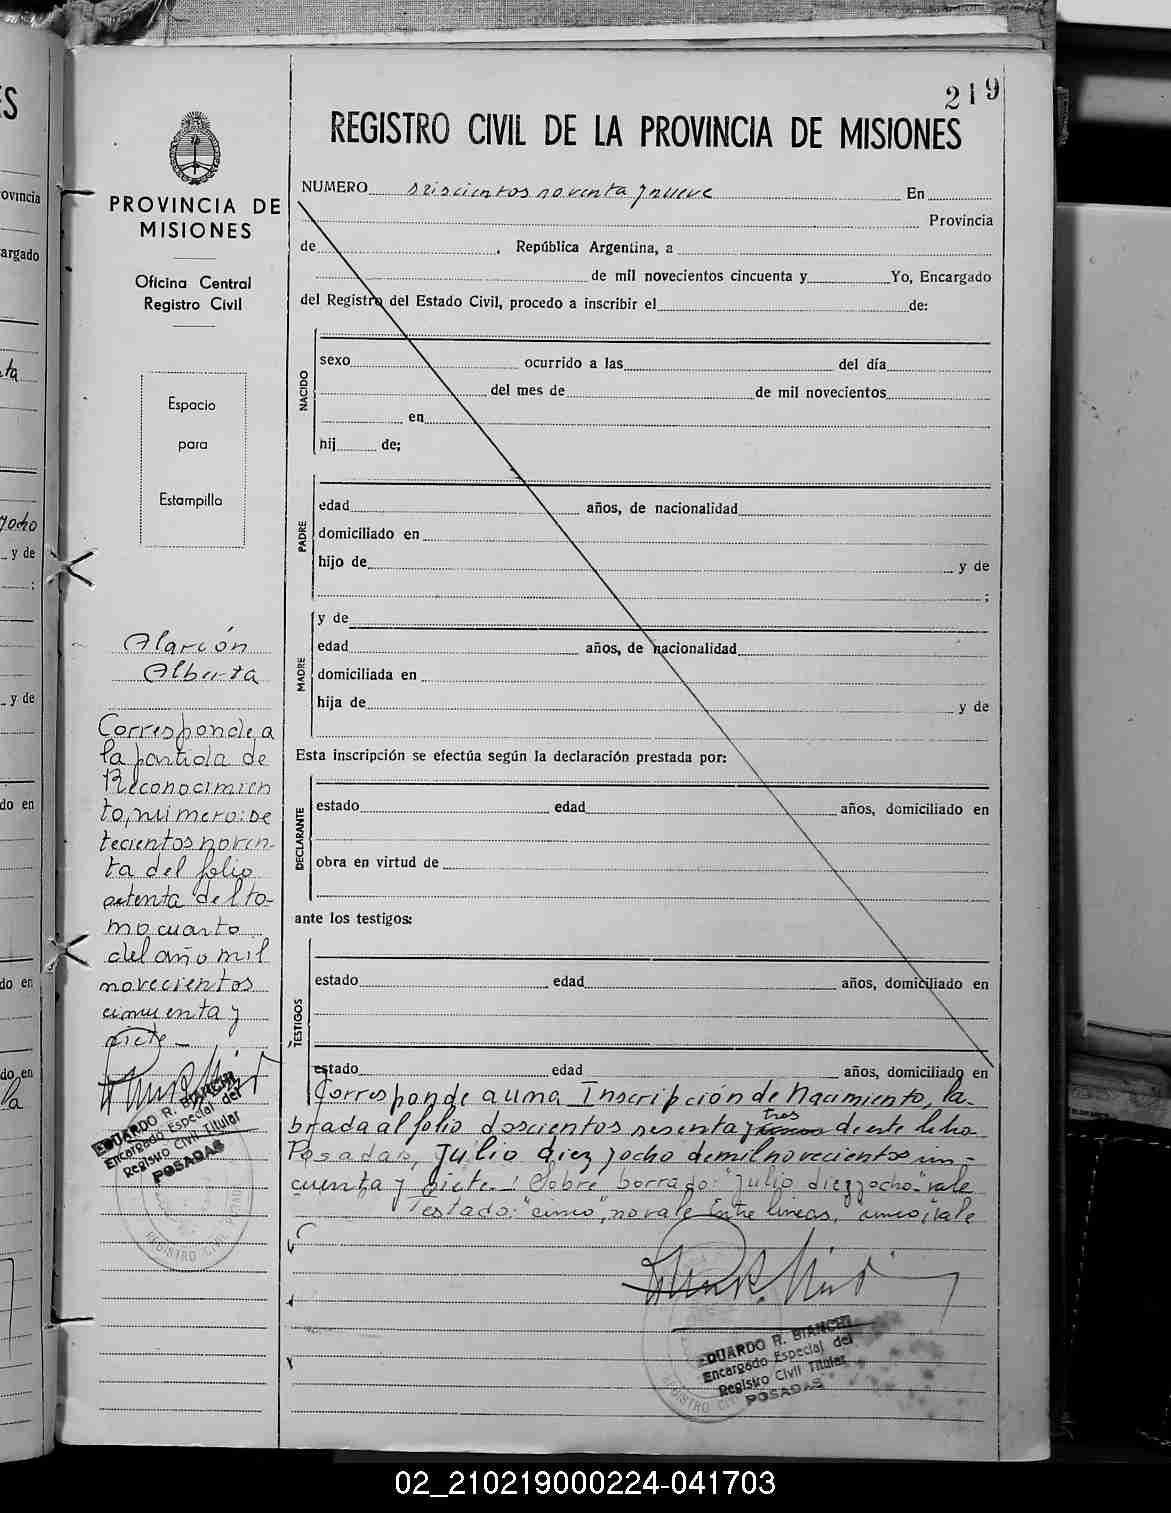 219
REGISTRO CIVIL DE LA PROVINCIA DE MISIONES
PROVINCIA DE
MISIONES
Oficina Central
Registro Civil
Espacio
para
Estampilla
Alarcón
Alberta
Corresponde a
la partida de
Reconocimien
to, número: se
tecientos noven-
ta del folio
setenta del to-
mo cuarto
del año mil
novecientos
cincuenta y
siete.-
EDUARDO R. BIANCHI
Encargado Especial del
Registro Civil Titular
POSADAS
NUMERO seiscientos noventa y nueve En
Provincia
de , República Argentina, a
de mil novecientos cincuenta y Yo, Encargado
del Registro del Estado Civil, procedo a inscribir el de:
NACIDO
sexo ocurrido a las del día
del mes de de mil novecientos
en
hij de;
PADRE
edad años, de nacionalidad
domiciliado en
hijo de y de
;
MADRE
y de
edad años, de nacionalidad
domiciliada en
hija de y de
Esta inscripción se efectúa según la declaración prestada por:
DECLARANTE
estado edad años, domiciliado en
obra en virtud de
ante los testigos:
TESTIGOS
estado edad años, domiciliado en
estado edad años, domiciliado en
Corresponde a una Inscripción de Nacimiento, la-
tres
brada al folio doscientos sesenta y de este libro
Posadas, Julio diez y ocho de mil novecientos cin-
cuenta y siete.- Sobre borrado: "Julio diez y ocho" vale
Testado: "cinco", no vale Entre lineas, vale
EDUARDO R. BIANCHI
Encargado Especial del
Registro Civil Titular
POSADAS
02_210219000224-041703